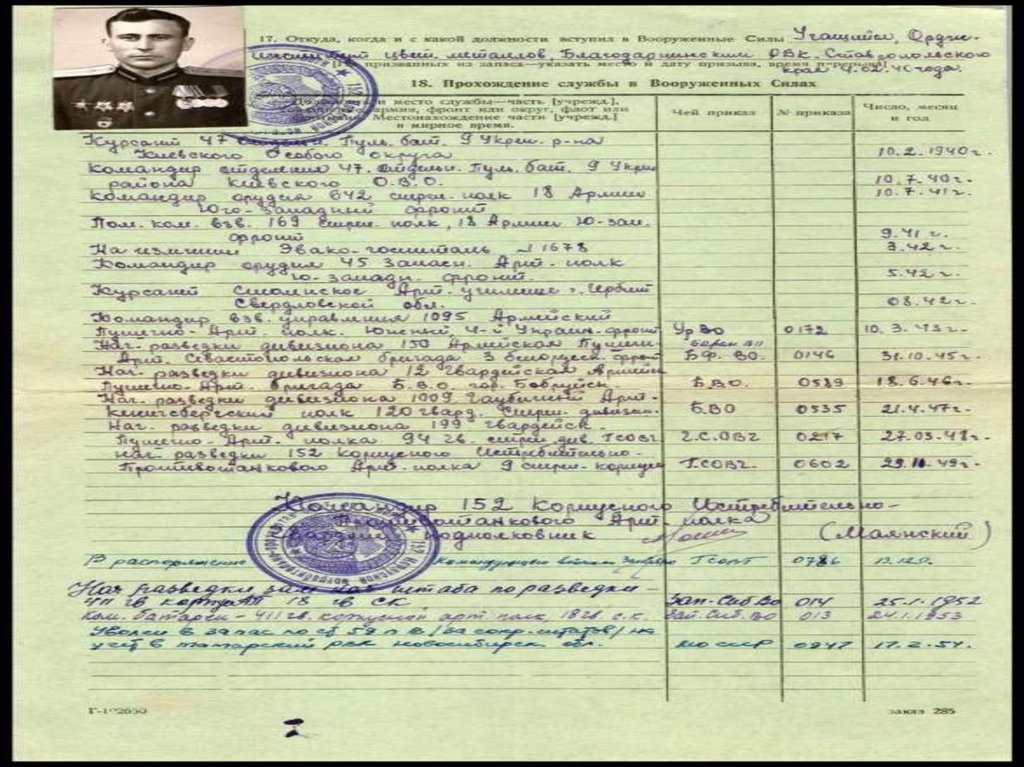 17. Откуда, когда и с какой должности вступил в Вооруженные Силы Учащийся, Ордж.
цвет. металлов, Благодарненским РВК Ставропольского
призванных из запаса—указать место и дату призыва, время
края 4.02.40 года.
18. Прохождение службы в Вооруженных Силах
и место службы—часть [учрежд.],
армия, фронт или округ, флот или
Местонахождение части [учрежд.]
в мирное время.
Чей приказ
№ приказа
Число, месяц
и год
Курсант 47 Пуль. бат. 9 Укреп. р-на
Киевского Особого округа 10.2.1940г.
Командир отделения 47. отдельн. Пуль. бат. 9 Укреп.
района Киевского О.В.О. 10.7.40г.
Командир орудия 642 стрел. полк 18 Армии 10.7.41г.
Юго-Западный фронт
Пом. ком. взв. 169 стрел. полк, 18 Армии Ю-зап.
фронт 9.41г.
На излечении Эвако-госпиталь 1678 3.42г.
Командир орудия 45 Запасн. Арт. полк
Ю-западн. фронт. 5.42г.
Курсант Смоленское Арт. училище г. Ирбит
Свердловской обл. 08.42г.
Командир взв. управления 1095 Армейский
Пушечно-Арт. полк. Южный, 4-й Украин. фронт УрВО 0172 10.3.43г.
Нач. разведки дивизиона 150 Армейская Пушечн.
Арт. Севастопольская бригада 3 белорусск. фронт Б.Ф. ВО. 0146 31.10.45г.
Нач. разведки дивизиона 12 Гвардейская Армейск.
Пушечно-Арт. бригада Б.В.О. гор. Бобруйск. Б.В.О. 0589 18.6.46г.
Нач. разведки дивизиона 1009 Гаубичный Арт.
Кенигсбергский полк 120 гвард. Стрел. дивизии. БВО 0535 21.4.47г.
Нач. разведки дивизиона 199 гвардейск.
Пушечно-Арт. полка 94 гв. стрел. див. ГСОВГ Г.С.ОВГ 0217 27.03.48г.
Нач. разведки 152 корпусного Истребительно-
Противотанкового Арт. полка 9 стрел. корпуса ГСОВГ. 0602 29.11.49г.
Командир 152 Корпусного Истребительно-
Противотанкового Арт. полка
Гвардии подполковник (Маянский)
В распоряжение Командующего войсками ГСОВГ 0786
Нач. разведки зам. нач. штаба по разведки -
411 гв. корпус. 18 гв СК Зап-Сиб.Во 014 25.1.1952
Ком. батареи - 411 гв. корпусной арт полк, 18 гв. с.к. Зап. Сиб. Во 013 24.1.1953
Уволен в запас по ст 59 п в /за сокр. штатов/ на
учет в татарский рвк новосибирск. обл. МО СССР 0247 17.2.54.
заказ 285